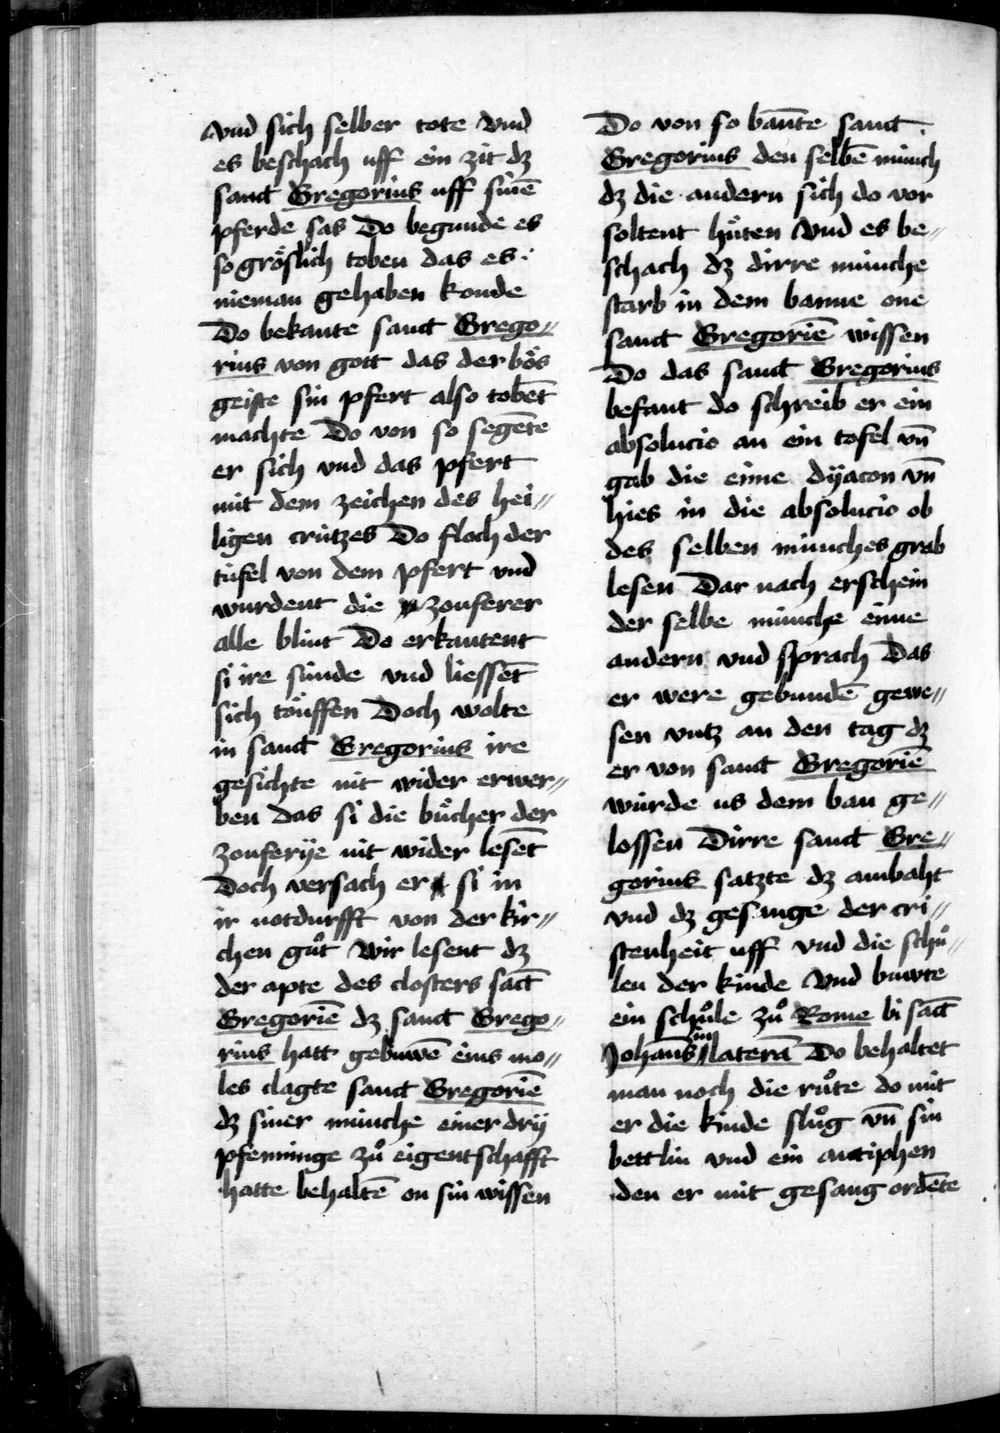 vnd sich selber tote vnd
es beschach uff ein zit dz
sanct Gregorius uff sinē
pferde sas Do begunde es
so gröslich toben das es
nieman gehaben konde
Do bekante sanct Grego〃
rius von gott das der bös
geiste sin pfert also tobēt
machte Do von so segēte
er sich vnd das pfert
mit dem zeichen des hei〃
ligen crützes Do floch der
tüfel von dem pfert vnd
wurdent die zouferer
alle blint Do erkantent
si ire sünde vnd liessēt
sich töuffen Doch wolte
in sanct Gregorius ire
gesichte nit wider erwer〃
ben das si die bücher der
zouferÿe nit wider lesēt
Doch versach er si in
ir notdurfft von der kir〃
chen guͦt Wir lesent dz
der apte des closters sāct
Gregoriē dz sanct Grego〃
rius hatt gebuwē eins mo〃
les clagte sanct Gregoriē
dz siner münche einer drÿ
pfenninge zuͦ eigentschafft
hatte behaltē on sin wissen
Do von so bānte sanct
Gregorius den selbē münch
dz die andern sich do vor
soltent hüten Vnd es be〃
schach dz dirre münche
starb in dem banne one
sanct Gregoriē wissen
Do das sanct Gregorius
befant do schreib er ein
absolucio an ein tofel vn̄
gab die eime dÿacon vn̄
hies in die absolucio ob
des selben münches grab
lesen Dar nach erschein
der selbe münche eime
andern vnd sprach Das
er were gebundē gewe〃
sen vntz an den tag dz
er von sanct Gregoriē
würde us dem ban ge〃
lossen Dirre sanct Gre〃
gorius satzte dz ambaht
vnd dz gesange der cri〃
stenheit uff vnd die schuͦ〃
len der kinde Vnd buwte
ein schuͦle zuͦ Rome bi sāct
Johans im laterā Do behaltet
man noch die ruͦte do mit
er die kinde sluͦg vn̄ sin
bettlin vnd ein antiphen
den er mit gesang ordēte